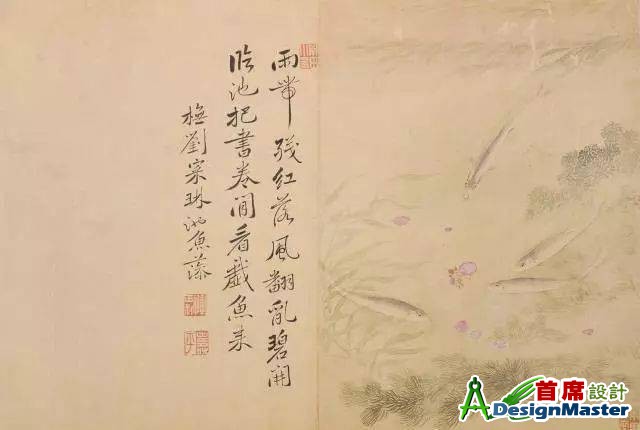 雨帶殘紅落風翻亂碧開
臨池把書卷閒看戲魚来
橅劉寀琳池魚藻
首席設計
DesignMaster